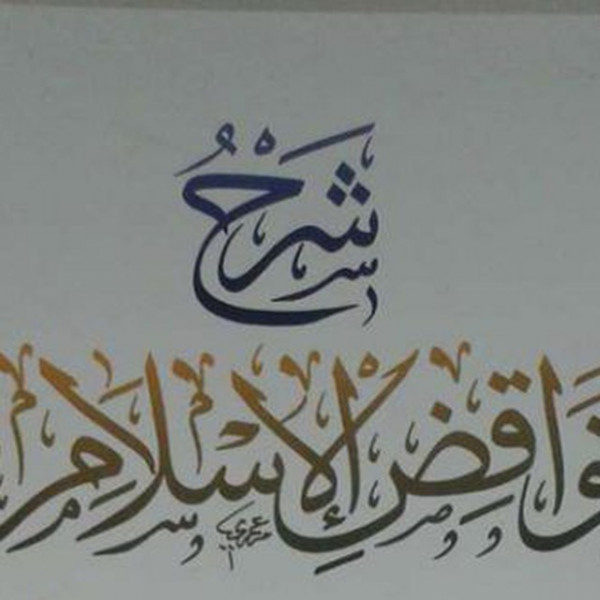 شَرْحُ
نواقِضِ الإِسْلَامِ